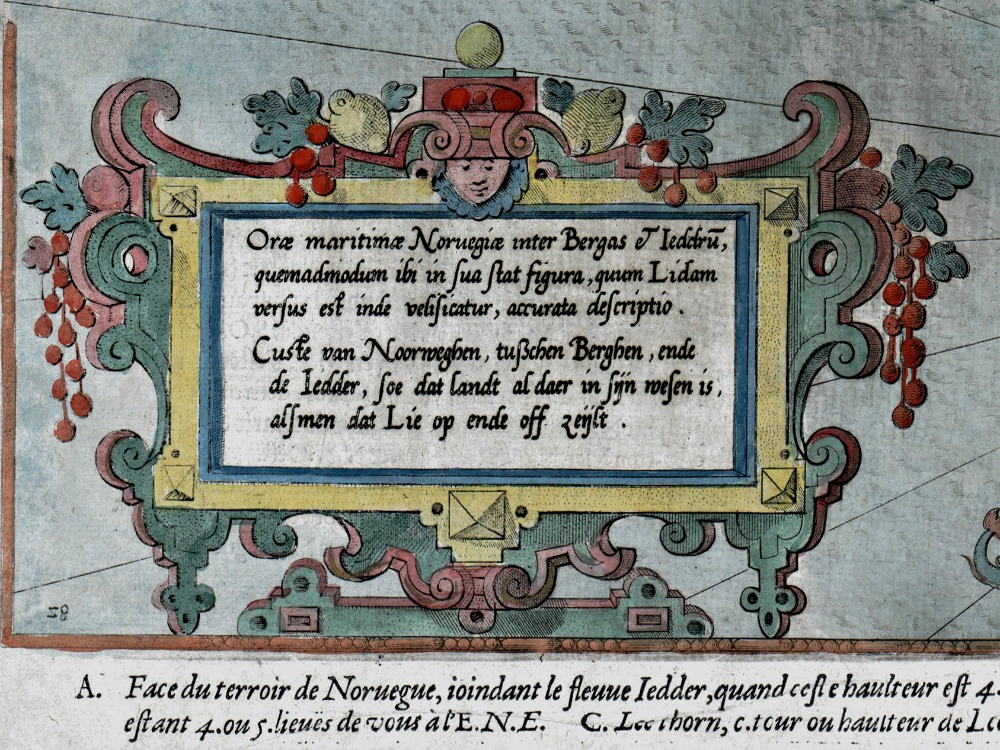 Oræ maritimæ Noruegiæ inter Bergas & Ieddrū,
quemadmodum ibi in sua stat figura, quum Lidam
versus est inde velificatur, accurata descriptio.
Custe van Noorweghen, tußchen Berghen, ende
de Iedder, soe dat landt al daer in sijn wesen is,
alsmen dat Lie op ende off zeijlt.
28
A. Face du terroir de Noruegue, ioindant le fleuue Iedder, quand ceste haulteur est 4.
estant 4. ou 5. lieuës de vous à l'E.N.E. C. c. tour ou haulteur de